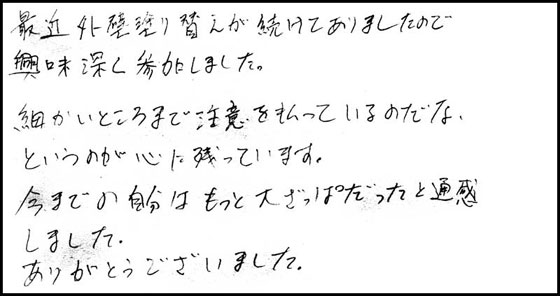 最近外壁塗り替えが続けてありましたので
興味深く参加しました。
細かいところまで注意を払っているのだな、
というのが心に残っています。
今までの自分はもっと大ざっぱだったと通感
しました。
ありがとうございました。